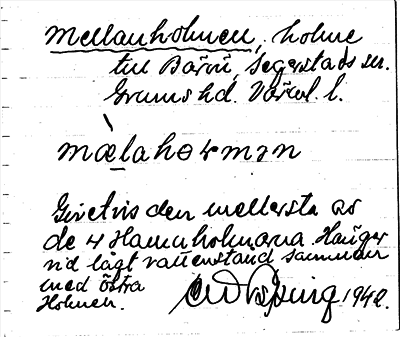 Mellanholmen, holme
till Bärön, Segerstads sn.
Grums hd. Värml. l.
mæ̀laholmən
Givetvis den mellersta av
de 4 Hamnholmarna. Hänger
vid lågt vattenstånd samman
med östra
Holmen. 1942.